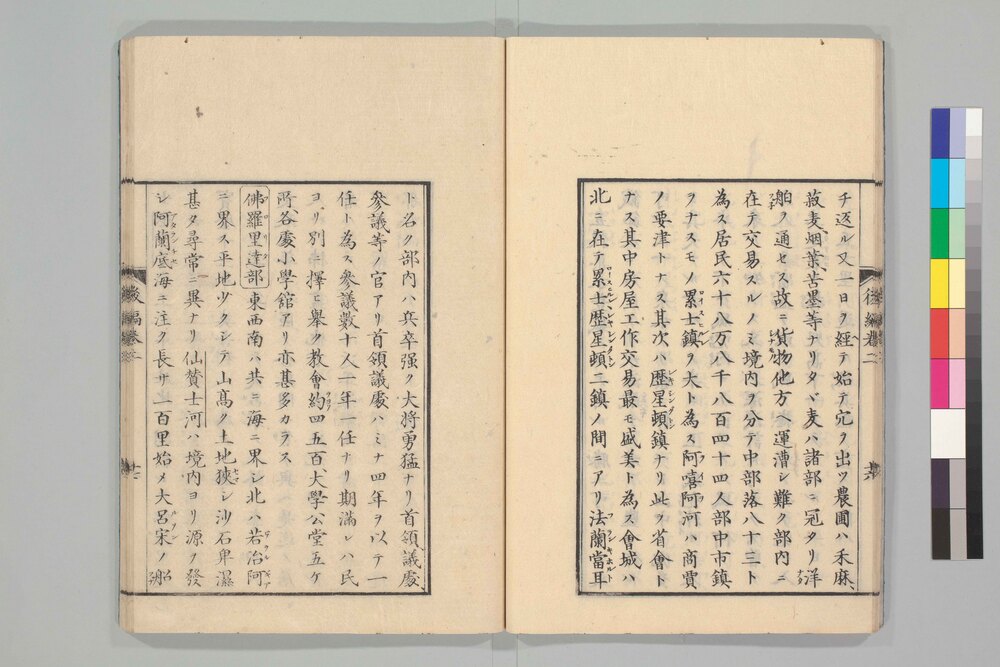 チ返ル又一日ヲ經テ始テ穴ヲ出ツ農圃ハ禾麻
菽麦烟葉苦墨等ナリタヾ麦ハ諸部ニ冠タリ洋
舶ノ通セス故ニ貨物他方ヘ運漕シ難ク部内ニ
在テ交易スルノミ境内ヲ分テ中部落八十三ト
為ス居民六十八万八千八百四十四人部中市鎮
ヲナスモノ累士鎮ヲ大ト為ス阿嘻阿河ハ商賈
ノ要津トナス其次ハ歴星頓鎮ナリ此ヲ省會ト
ナス其中房屋工作交易最モ盛美ト為ス會城ハ
北ニ在テ累士歴星頓二鎮ノ間ニアリ法蘭當耳
後編巻二
ト名ク部内ハ兵卒强ク大将勇猛ナリ首領議處
參議等ノ官アリ首領議處ハミナ四年ヲ以テ一
任ト為ス參議數十人一年一任ナリ期滿レハ民
ヨリ別ニ擇ヒ舉ク教會約四五百大學公堂五ケ
所各處小學館アリ亦甚多カラス
佛羅里達部東西南ハ共ニ海ニ界シ北ハ若治阿
ニ界ス平地少クシテ山髙ク土地狹シ沙石卑濕
甚タ尋常ニ異ナリ仙賛士河ハ境内ヨリ源ヲ發
シ阿蘭底海ニ注ク長サ二百里始メ大呂宋ノ船
後編巻二